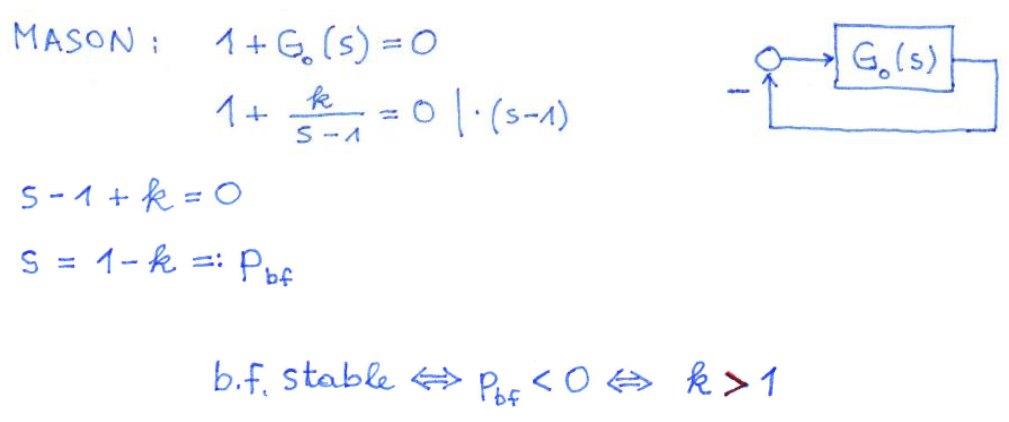 MASON : 1 + G₀(s) = 0
G₀(s)
1 + k/(s-1) = 0 | · (s-1)
−
s - 1 + k = 0
s = 1 - k =: p_bf
b.f. stable ⇔ p_bf < 0 ⇔ k > 1